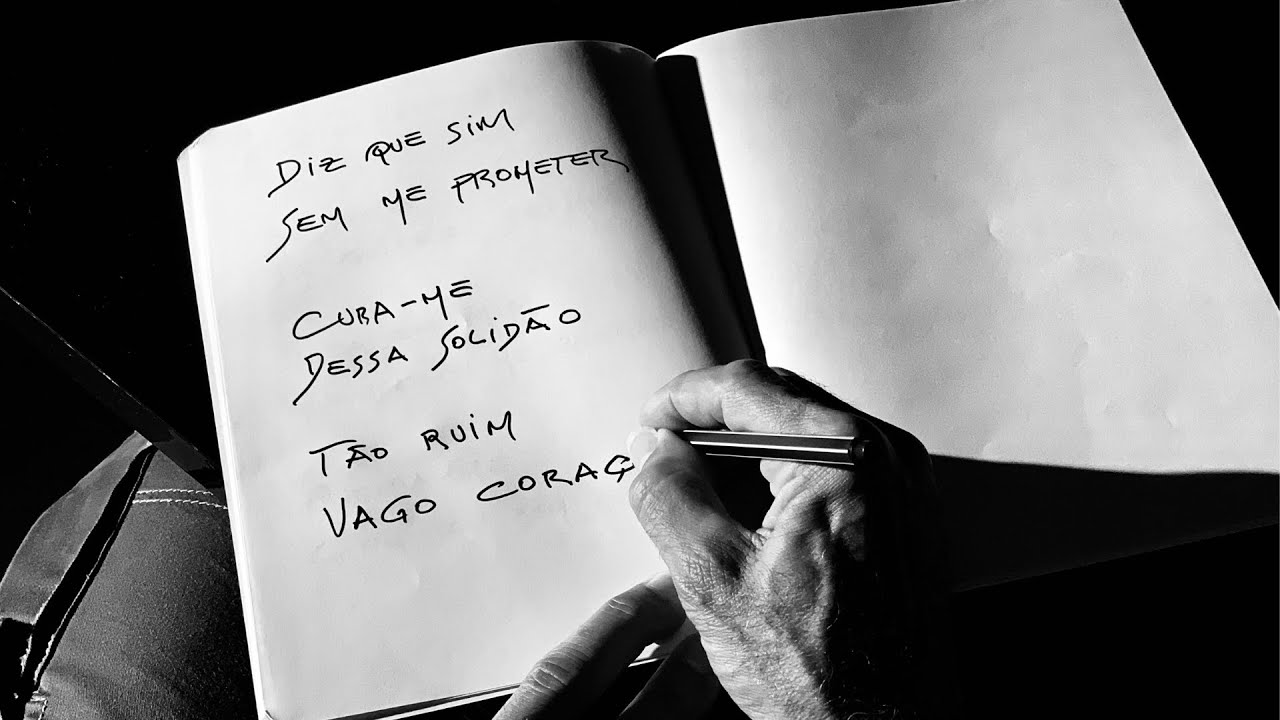 DIZ QUE SIM
SEM ME PROMETER
CURA-ME
DESSA SOLIDÃO
TÃO RUIM
VAGO CORAÇ